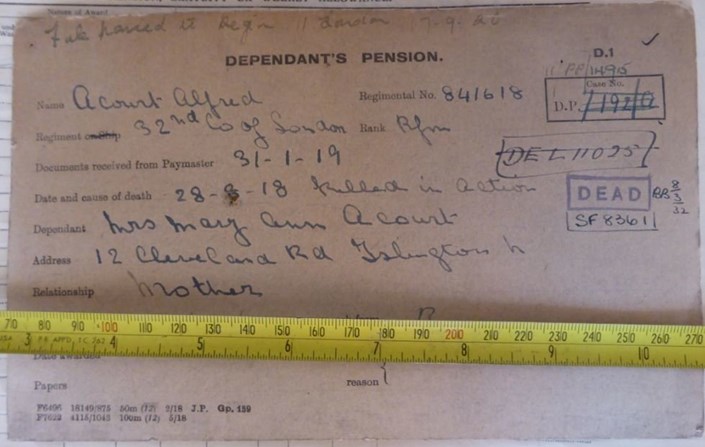 DEPENDANT'S PENSION.
D.1
Name Acourt Alfred
Regimental No. 841618
Case No.
D.P.
Regiment or Ship 32nd Co of London Rank Rfm
Documents received from Paymaster 31-1-19
DEL11025
Date and cause of death 28-8-18 killed in action
DEAD
SF8361
Dependant Mrs Mary Ann Acourt
Address 12 Cleveland Rd Islington N
Relationship Mother
70 80 90 100 110 120 130 140 150 160 170 180 190 200 210 220 230 240 250 260 270
3 4 5 6 7 8 9 10
Papers
reason
F6495 16149/975 50m (12) 2/18 J.P. Gp. 159
F7622 4115/1043 100m (12) 5/18